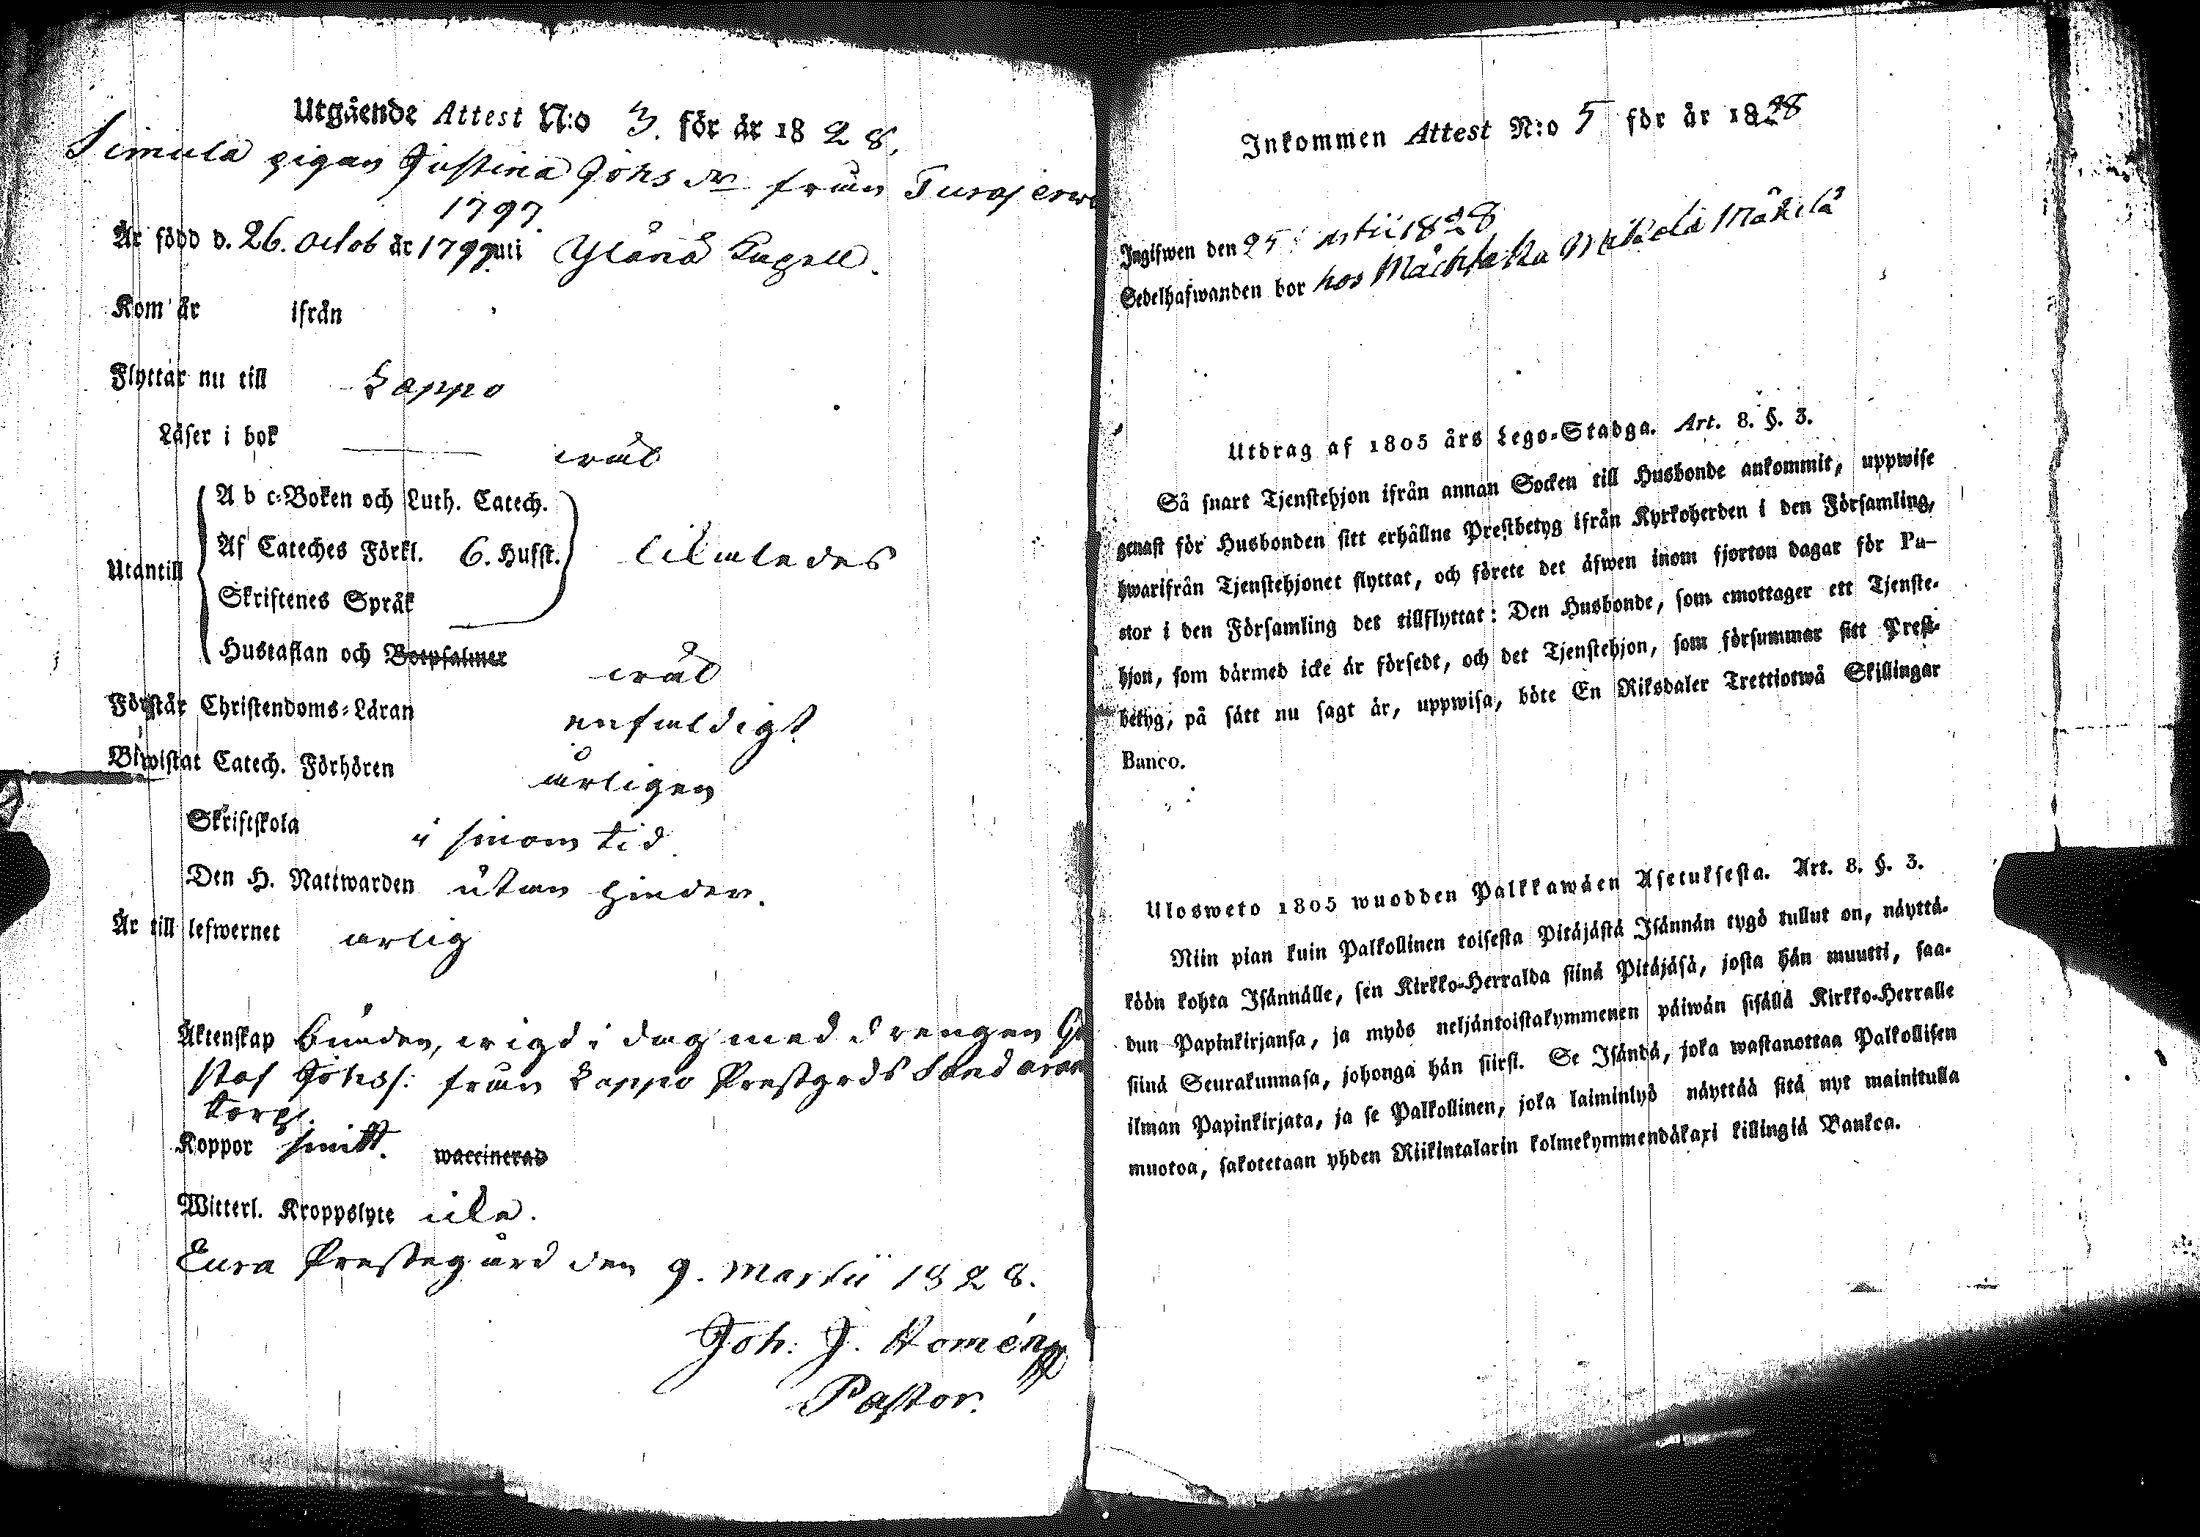 Utgående Attest N:o 3. för år 1828.
Simula pigan Justina Johs dr från Turajerw
1797.
År född d. 26. Octob år 1797 uti Yläne Capell.
Kom år ifrån
Flyttar nu till Lappo
Läser i bok wäl
A b c-Boken och Luth. Catech.
Af Cateches Förkl. 6. Hufst. likaledes
Utantill
Skriftenes Språk
Hustaflan och Botpsalmer wäl
Förstår Christendoms-Läran enfaldigt
Biwistat Catech. Förhören årligen
Skriftskola i sinom tid.
Den H. Nattwarden utan hinder.
Är till lefwernet ärlig
Äktenskap bunden, wigd i dag med drengen Gu
staf Johss: från Lappo Prestgrds
torp.
Koppor haft. waccinerad
Witterl. Kroppslyte icke.
Eura Prestegård den 9. Martii 1828.
Joh: J. Homén
Pastor.
Inkommen Attest N:o 5 för år 1828
Ingifwen den 25 Martii 1828
Sedelhafwanden bor hos Mäkelä
Utdrag af 1805 års Lego-Stadga. Art. 8. §. 3.
Så snart Tjenstehjon ifrån annan Socken till Husbonde ankommit, uppwise
genast för Husbonden sitt erhållne Prestbetyg ifrån Kyrkoherden i den Församling,
hwarifrån Tjenstehjonet flyttat, och förete det äfwen inom fjorton dagar för Pa-
stor i den Församling det tillflyttat: Den Husbonde, som emottager ett Tjenste-
hjon, som därmed icke är försedt, och det Tjenstehjon, som försummar sitt Prest-
betyg, på sätt nu sagt är, uppwisa, böte En Riksdaler Trettiotwå Skillingar
Banco.
Ulosweto 1805 wuodden Palkkawäen Asetuksesta. Art. 8. §. 3.
Niin pian kuin Palkollinen toisesta Pitäjästä Isännän tygö tullut on, näyttä-
köön kohta Isännälle, sen Kirkko-Herralda siinä Pitäjäsä, josta hän muutti, saa-
dun Papinkirjansa, ja myös neljäntoistakymmenen päiwän sisällä Kirkko-Herralle
siinä Seurakunnasa, johonga hän siirst. Se Isändä, joka wastanottaa Palkollisen
ilman Papinkirjata, ja se Palkollinen, joka laiminlyö näyttää sitä nyt mainitulla
muotoa, sakotetaan yhden Riikintalarin kolmekymmendäkaxi killingiä Bankca.